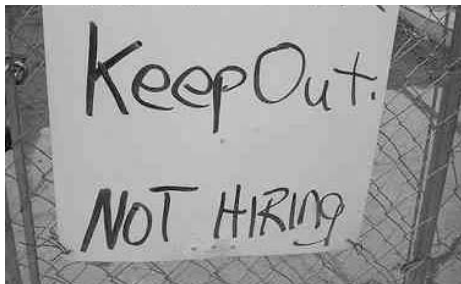 Keep Out.
NOT HIRING